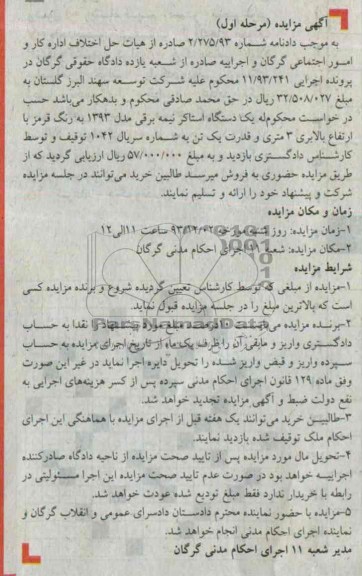 آگهی مزایده (مرحله اول)
به موجب دادنامه شماره ۲/۲۷۵/۹۳ صادره از هیات حل اختلاف اداره کار و
امور اجتماعی گرگان و اجراییه صادره از شعبه یازده دادگاه حقوقی گرگان در
پرونده اجرایی ۱۱/۹۳/۲۴۱ محکوم علیه شرکت توسعه سهند البرز گلستان به
مبلغ ۳۲/۵۰۸/۰۲۷ ریال در حق محمد صادقی محکوم و بدهکار می‌باشد حسب
در خواست محکوم‌له یک دستگاه استاکر نیمه برقی مدل ۱۳۹۳ به رنگ قرمز با
ارتفاع بالابری ۳ متری و قدرت یک تن به شماره سریال ۱۰۴۲ توقیف و توسط
کارشناس دادگستری بازدید و به مبلغ ۵۷/۰۰۰/۰۰۰ ریال ارزیابی گردید که از
طریق مزایده حضوری به فروش میرسد طالبین خرید می‌توانند در جلسه مزایده
شرکت و پیشنهاد خود را ارائه و تسلیم نمایند.
زمان و مکان مزایده
۱-زمان مزایده: روز شنبه مورخه ۹۳/۱۲/۰۲ ساعت ۱۱الی۱۲
۲-مکان مزایده: شعبه ۱۱ اجرای احکام مدنی گرگان
شرایط مزایده
۱-مزایده از مبلغی که توسط کارشناس تعیین گردیده شروع و برنده مزایده کسی
است که بالاترین مبلغ را در جلسه مزایده قبول نماید.
۲-برنده مزایده می‌بایست ۱۰درصد مبلغ مورد پیشنهاد را نقدا به حساب
دادگستری واریز و مابقی آن را ظرف یک‌ماه از تاریخ اجرای مزایده به حساب
سپرده واریز و قبض واریز شده را تحویل دایره اجرا نماید در غیر این صورت
وفق ماده ۱۲۹ قانون اجرای احکام مدنی سپرده پس از کسر هزینه‌های اجرایی به
نفع دولت ضبط و آگهی مزایده تجدید خواهد شد.
۳-طالبین خرید می‌توانند یک هفته قبل از اجرای مزایده با هماهنگی این اجرای
احکام ملک توقیف شده بازدید نمایند.
۴-تحویل مال مورد مزایده پس از تایید صحت مزایده از ناحیه دادگاه صادرکننده
اجراییه خواهد بود در صورت عدم تایید صحت مزایده این اجرا مسئولیتی در
رابطه با خریدار ندارد فقط مبلغ تودیع شده عودت خواهد شد.
۵-مزایده با حضور نماینده محترم دادستان دادسرای عمومی و انقلاب گرگان و
نماینده اجرای احکام مدنی انجام خواهد شد.
مدیر شعبه ۱۱ اجرای احکام مدنی گرگان